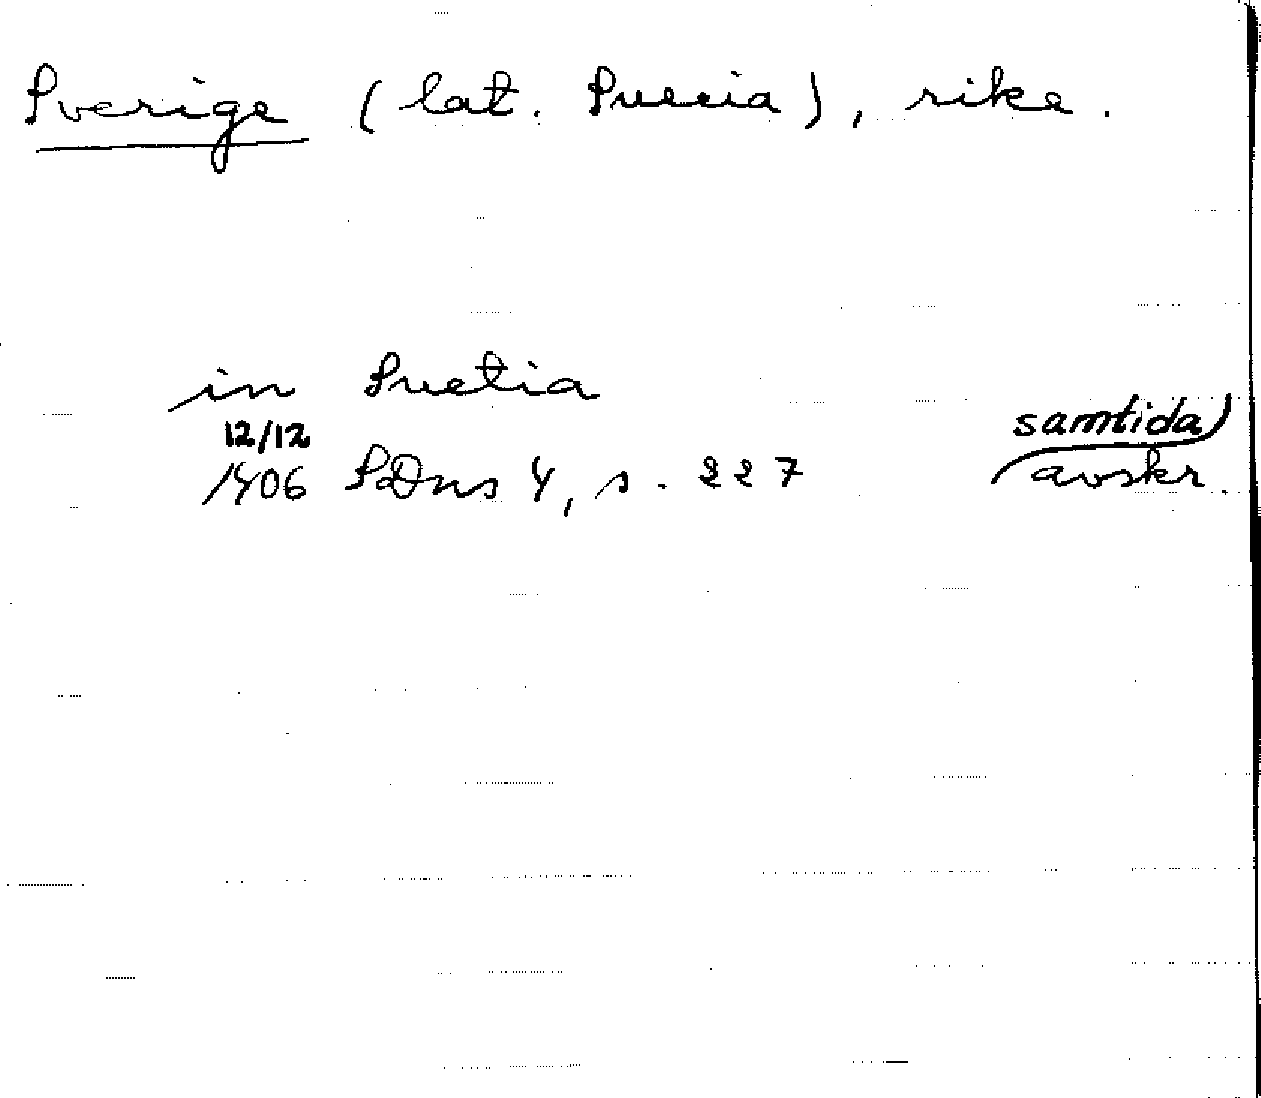 Sverige (lat. Suecia), rike.
in Suetia
12/12 samtida
1406 SDns 4, s. 227 avskr.